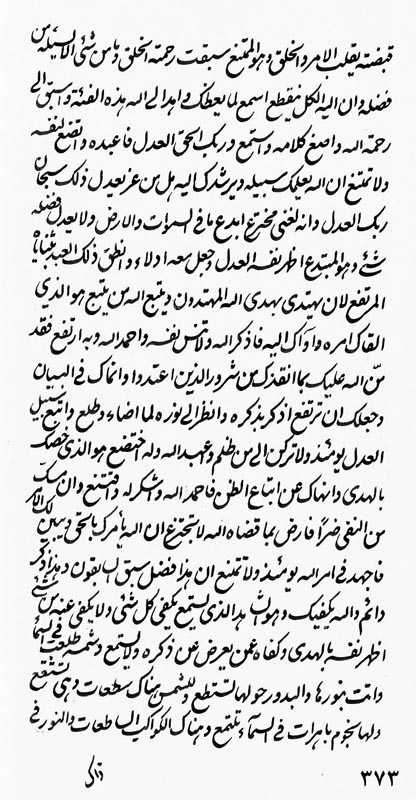 قبضته يقلب الامر والخلق وهو الممتنع سبقت رحمته الخلق وما من شئ الا يسئله من
فضله وان اليه الكل ينقطع اسمع لما يعظك واهد الى الله هذه الفئة واسبق الى
رحمة الله واصغ كلامه واستمع وربك الحق العدل فاعبده واتضع لنفسه
ولا تمتنع ان الله يعلمك سبيله ويرشدك اليه هل من عز يعدل ذلك سبحان
ربك العدل وانه لغنى مخترع ابدع ما فى السموات والارض ولا يعدل فضله
شئ وهو المبتدع اظهر نفسه العدل وجعل معه ادلاء وانطق ذلك العبد بثنائه
المرتفع لان يهتدى بهدى الله المهتدون ويتبع الله من يتبع هو الذى
القاك امره واواك اليه فاذكر الله ولا تنس نفسه واحمد الله وبه ارتفع فقد
من الله عليك بما انقذك من شرور الذين اعتدوا وانماك فى البيان
وجعلك ان ترتفع اذكر بذكره وانظر الى نوره لما اضاء وطلع واتبع سبيل
العدل يومئذ ولا تركن الى من ظلم وعهد الله وله اختضع هو الذى خصك
بالهدى وانهاك عن اتباع الظن فاحمد الله واشكر له واقتنع وان مسك
من النفى ضرا فارض بما قضاه الله لا تجتزع ان الله يأمرك بالحق ويبين لك الامر
فاجهد فى امر الله يومئذ ولا تمتنع ان هذا فضل سبق السابقون وهذا ذكر
دائم والله يكفيك وهو الذى يستمع يكفى كل شئ ولا يكفى عنه من شئ
اظهر نفسه بالهدى وكفاه عمن يعرض عن ذكره ولا يستمع وشمسه طلعت فى السماء
واتت بنورها والبدور حولها تستطع وللشمس هناك سطعات وهى تستشع
ولها نجوم باهرات فى السماء تلتمع وهناك الكواكب الساطعات والنور فى
٣٧٣